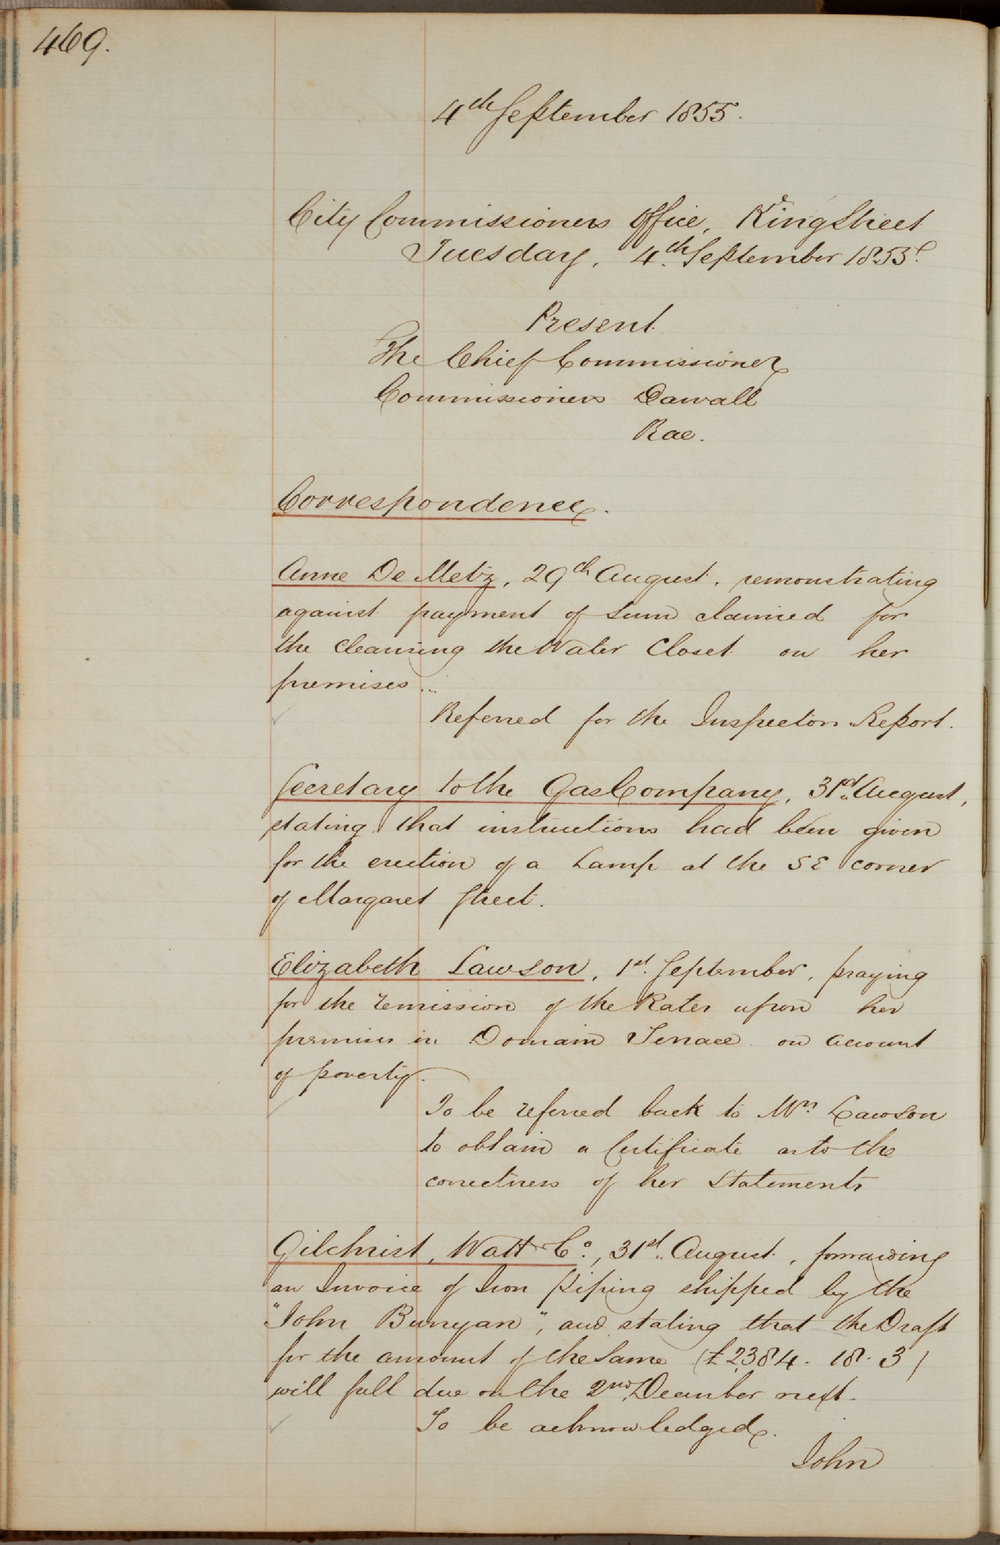 469.
4th September 1855.
City Commissioners Office, King Street
Tuesday, 4th September 1855.
Present
The Chief Commissioner
Commissioners Darvall
Rae.
Correspondence.
Anne De Metz, 29th August, remonstrating
against payment of Sum claimed for
the cleansing the Water Closet on her
premises..
Referred for the Inspectors Report.
Secretary to the Gas Company, 31st August,
stating that instructions had been given
for the erection of a Lamp at the SE corner
of Margaret Street.
Elizabeth Lawson, 1st September, praying
for the remission of the Rates upon her
premises in Domain Terrace on account
of poverty.
To be referred back to Mrs Lawson
to obtain a Certificate as to the
correctness of her Statements
Gilchrist, Watt & Co., 31st August, forwarding
an Invoice of Iron Piping shipped by the
"John Bunyan", and stating that the Draft
for the amount of the same (£2384. 18. 3)
will fall due on the 2nd December next.
To be acknowledged.
John